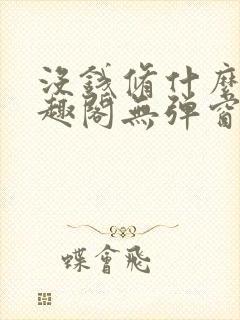 沒錢脩什麼
趣閣無彈窗
蝶會飛